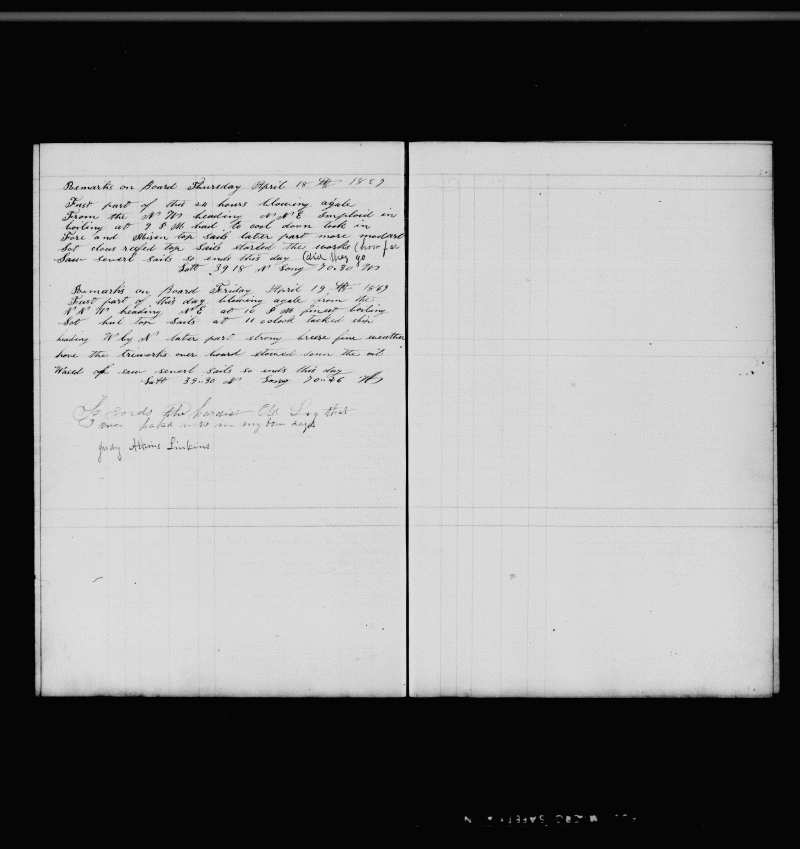 Remarks on Board Thursday April 18th 18
Fast part of this 24 hours blowing agale
From the N W heading N N E Imploid in
boiling at 9 P M had to cool down took in
Fore and Misen top sails later part more modart
Sot clous reefd top sails started the works (how far
Saw severl sails so ends this day (did they go
Latt 3918 N Long 70=30 W
Remarks on Board Friday April 19th 1869
Fast part of this day blowing agale from the
N N W heading N E at 10 P M finist boiling
Sot hul top sails at 11 oclock tacked ship
heading W by N later part strong breese fine weather
hove the over board stowed down the oil
of saw severl sails so ends this day
Latt 39=30 N Long 70=26 W
So ends the Old Log that
I ever in my born days
Judy Atkins